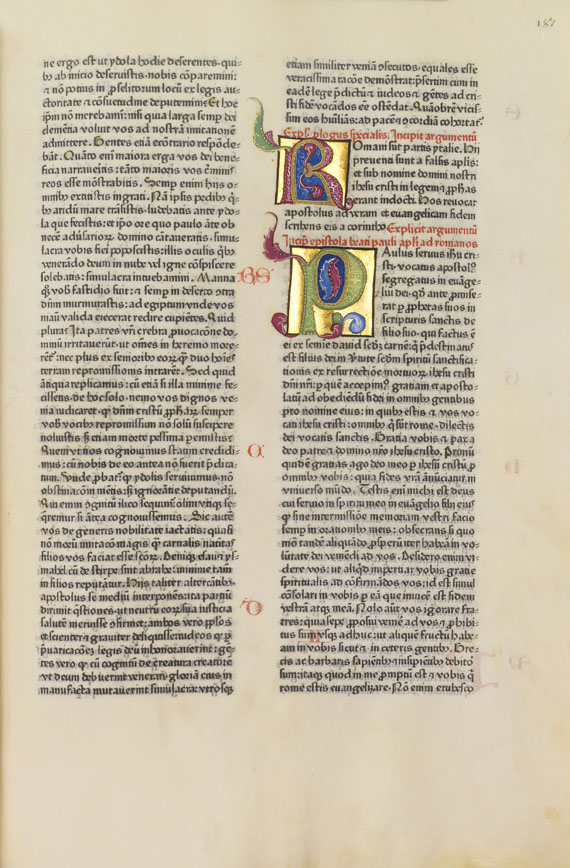 187
ne ergo est ut ydola hodie deserentes· qui-
bus ab inicio deseruistis·nobis cōparemini:
⁊ nō potius in ꝓselitorum locū ex legis au-
ctoritate ⁊ cōsuetudine deputemini· Et hoc
ipm nō merebamini: nisi quia larga semp dei
clemētia voluit vos ad nostrā imitationē
admittere. Gentes etiā econtrario respōde-
bāt. Quāto em̄ maiora erga vos dei bene-
ficia narraueritis: tāto maioris vos c̄minis
reos esse mōstrabitis. Semp enim hijs o-
mnibꝰ extitistis ingrati. Nā ipsis pedibꝰ qui-
bꝰ aridū mare trāsistis: ludebatis ante ydo-
la que fecistis: et ipo ore quo paulo āte ob
necē aduersarioꝝ domino cātaueratis· simu-
lacra vobis fieri poposcistis: illis oculis qibꝰ
venerādo deum in nube vel igne cōspicere
solebatis: simulacra intuebamini. Manna
qꝫ vob fastidio fuit: ⁊ semp in deserto cōtra
dn̄um murmurastis: ad egiptum vnde vos
manu valida eiecerat redire cupientes. Quid
plura? Ita patres vr̄i crebra ꝓuocatōne do-
minū irritauerūt· ut omes in heremo more-
rēt: nec plus ex senioribꝰ eoꝝ qꝫ duo hoīes
terram repromissionis intrarēt. Sed quid
ātiqua replicamus: cū etiā si illa minime fe-
cissetis· de hoc solo· nemo vos dignos ve-
nia iudicaret· qꝫ dn̄m cristū ꝓphetaꝝ semper
vob vocibꝰ repromissum nō solū suscipere
noluistis· sꝫ etiam morte pessima ꝑemistis:
quem vt nos cognouimus statim credidi-
mus: cū nobis de eo antea nō fuerit p̄dica-
tum. Unde ꝓbatur qꝫ ydolis seruiuimus· nō
obstinacōi mētis: sꝫ ignorātie deputandū.
Qui enim agnitū ilico sequimur: olim vtiqꝫ se-
queremur si ātea cognouissemus. Sic autē
vos de generis nobilitate iactatis: quasi
nō morū imitacō magis qꝫ carnalis natiuitas
filios vos faciat esse scōꝝ. Deniqꝫ esau ⁊ ys-
mahel cū de stirpe sint abrahe: minime tamē
in filios reputātur. Hijs taliter altercātibꝰ·
apostolus se mediū interponens: ita partiū
dirimit qōstiones· ut neutrū eoꝝ sua iusticia
salutē meruisse ꝯfirmet: ambos vero ꝓplos
et scienter ⁊ grauiter deliquisse: iudeos qꝫ ꝑ
p̄uaricacōem legis deū inhonorauerint: gē-
tes vero qꝫ cū cognitū de creatura creatorē
vt deum debuerint venerari· gloriā eius in
manufacta mutauerint simulacra: vtrosqꝫ
etiam similiter veniā ꝯsecutos· equales esse
veracissima racōe demōstrat: p̄sertim cum in
eadē lege p̄dictū sit ⁊ iudeos ⁊ gētes ad cri-
sti fidē vocādos eē ostēdat. Quāobrē vicis-
sim eos humiliās: ad pacē ⁊ cōcordiā cohortat̄.
Expl· ꝓlogus specialis. Incipit argumentū
Romani sunt partis ytalie. Hij
preuenti sunt a falsis aplis:
et sub nomine domini nostri
ihesu cristi in legem ⁊ ꝓphetas
erant inducti. Hos reuocat
apostolus ad veram et euangelicam fidem
scribens eis a corintho· Explicit argumentū
Incip̄ epistola beati pauli apl̄i ad romanos
Paulus seruus ihu cri-
sti· vocatus apostolꝰ·
segregatus in euāge-
liū dei· qd̄ ante ꝓmise-
rat ꝑ ꝓphetas suos in
scripturis sanctis de
filio suo· qui factus ē
ei ex semie dauid scd̄ꝫ carnē: qui p̄destinatꝰ
est filius dei in ꝟtute scd̄m spiritū sanctifica-
tionis ex resurrectiōe mortuoꝝ ihesu cristi
dn̄i nr̄i: ꝑ quē accepimꝰ gratiam et aposto-
latū ad obediendū fidei in omnibꝰ gentibus
pro nomine eius: in quibꝰ estis ⁊ vos vo-
cati ihesu cristi: omnibꝰ qui sūt rome· dilectis
dei vocatis sanctis. Gratia vobis ⁊ pax a
deo patre ⁊ domino nr̄o ihesu cristo. Primū
quidē gratias ago deo meo ꝑ ihesū cristū ꝓ
omnibꝰ vobis: quia fides vr̄a ānūciatur in
vniuerso mūdo. Testis em̄ michi est deus
cui seruio in spiritu meo in euāgelio filij eiꝰ
qꝫ sine intermissiōe memoriam vestri facio
semp in orationibꝰ meis: obsecrans si quo
mō tande aliquādo ꝓsperū iter habeā in vo-
lūtate dei veniēdi ad vos. Desidero enim vi-
dere vos: ut aliqd īpertiar vobis gratie
spiritualis ad cōfirmādos vos: id est simul
cōsolari in vobis ꝑ eā que inuicē est fidem
vestrā atqꝫ meā. Nolo aūt vos ignorare fra-
tres: quia sepe ꝓposui venire ad vos ⁊ ꝓhibi-
tus sum vsqꝫ adhuc: ut aliquē fructū habe-
am in vobis sicut ⁊ in ceteris gentibꝰ. Gre-
cis ac barbaris sapientibꝰ ⁊ insipientibꝰ debitor
sum: itaqꝫ quod in me ꝓmptū est ⁊ vobis qui
rome estis euangelizare. Nō enim erubesco